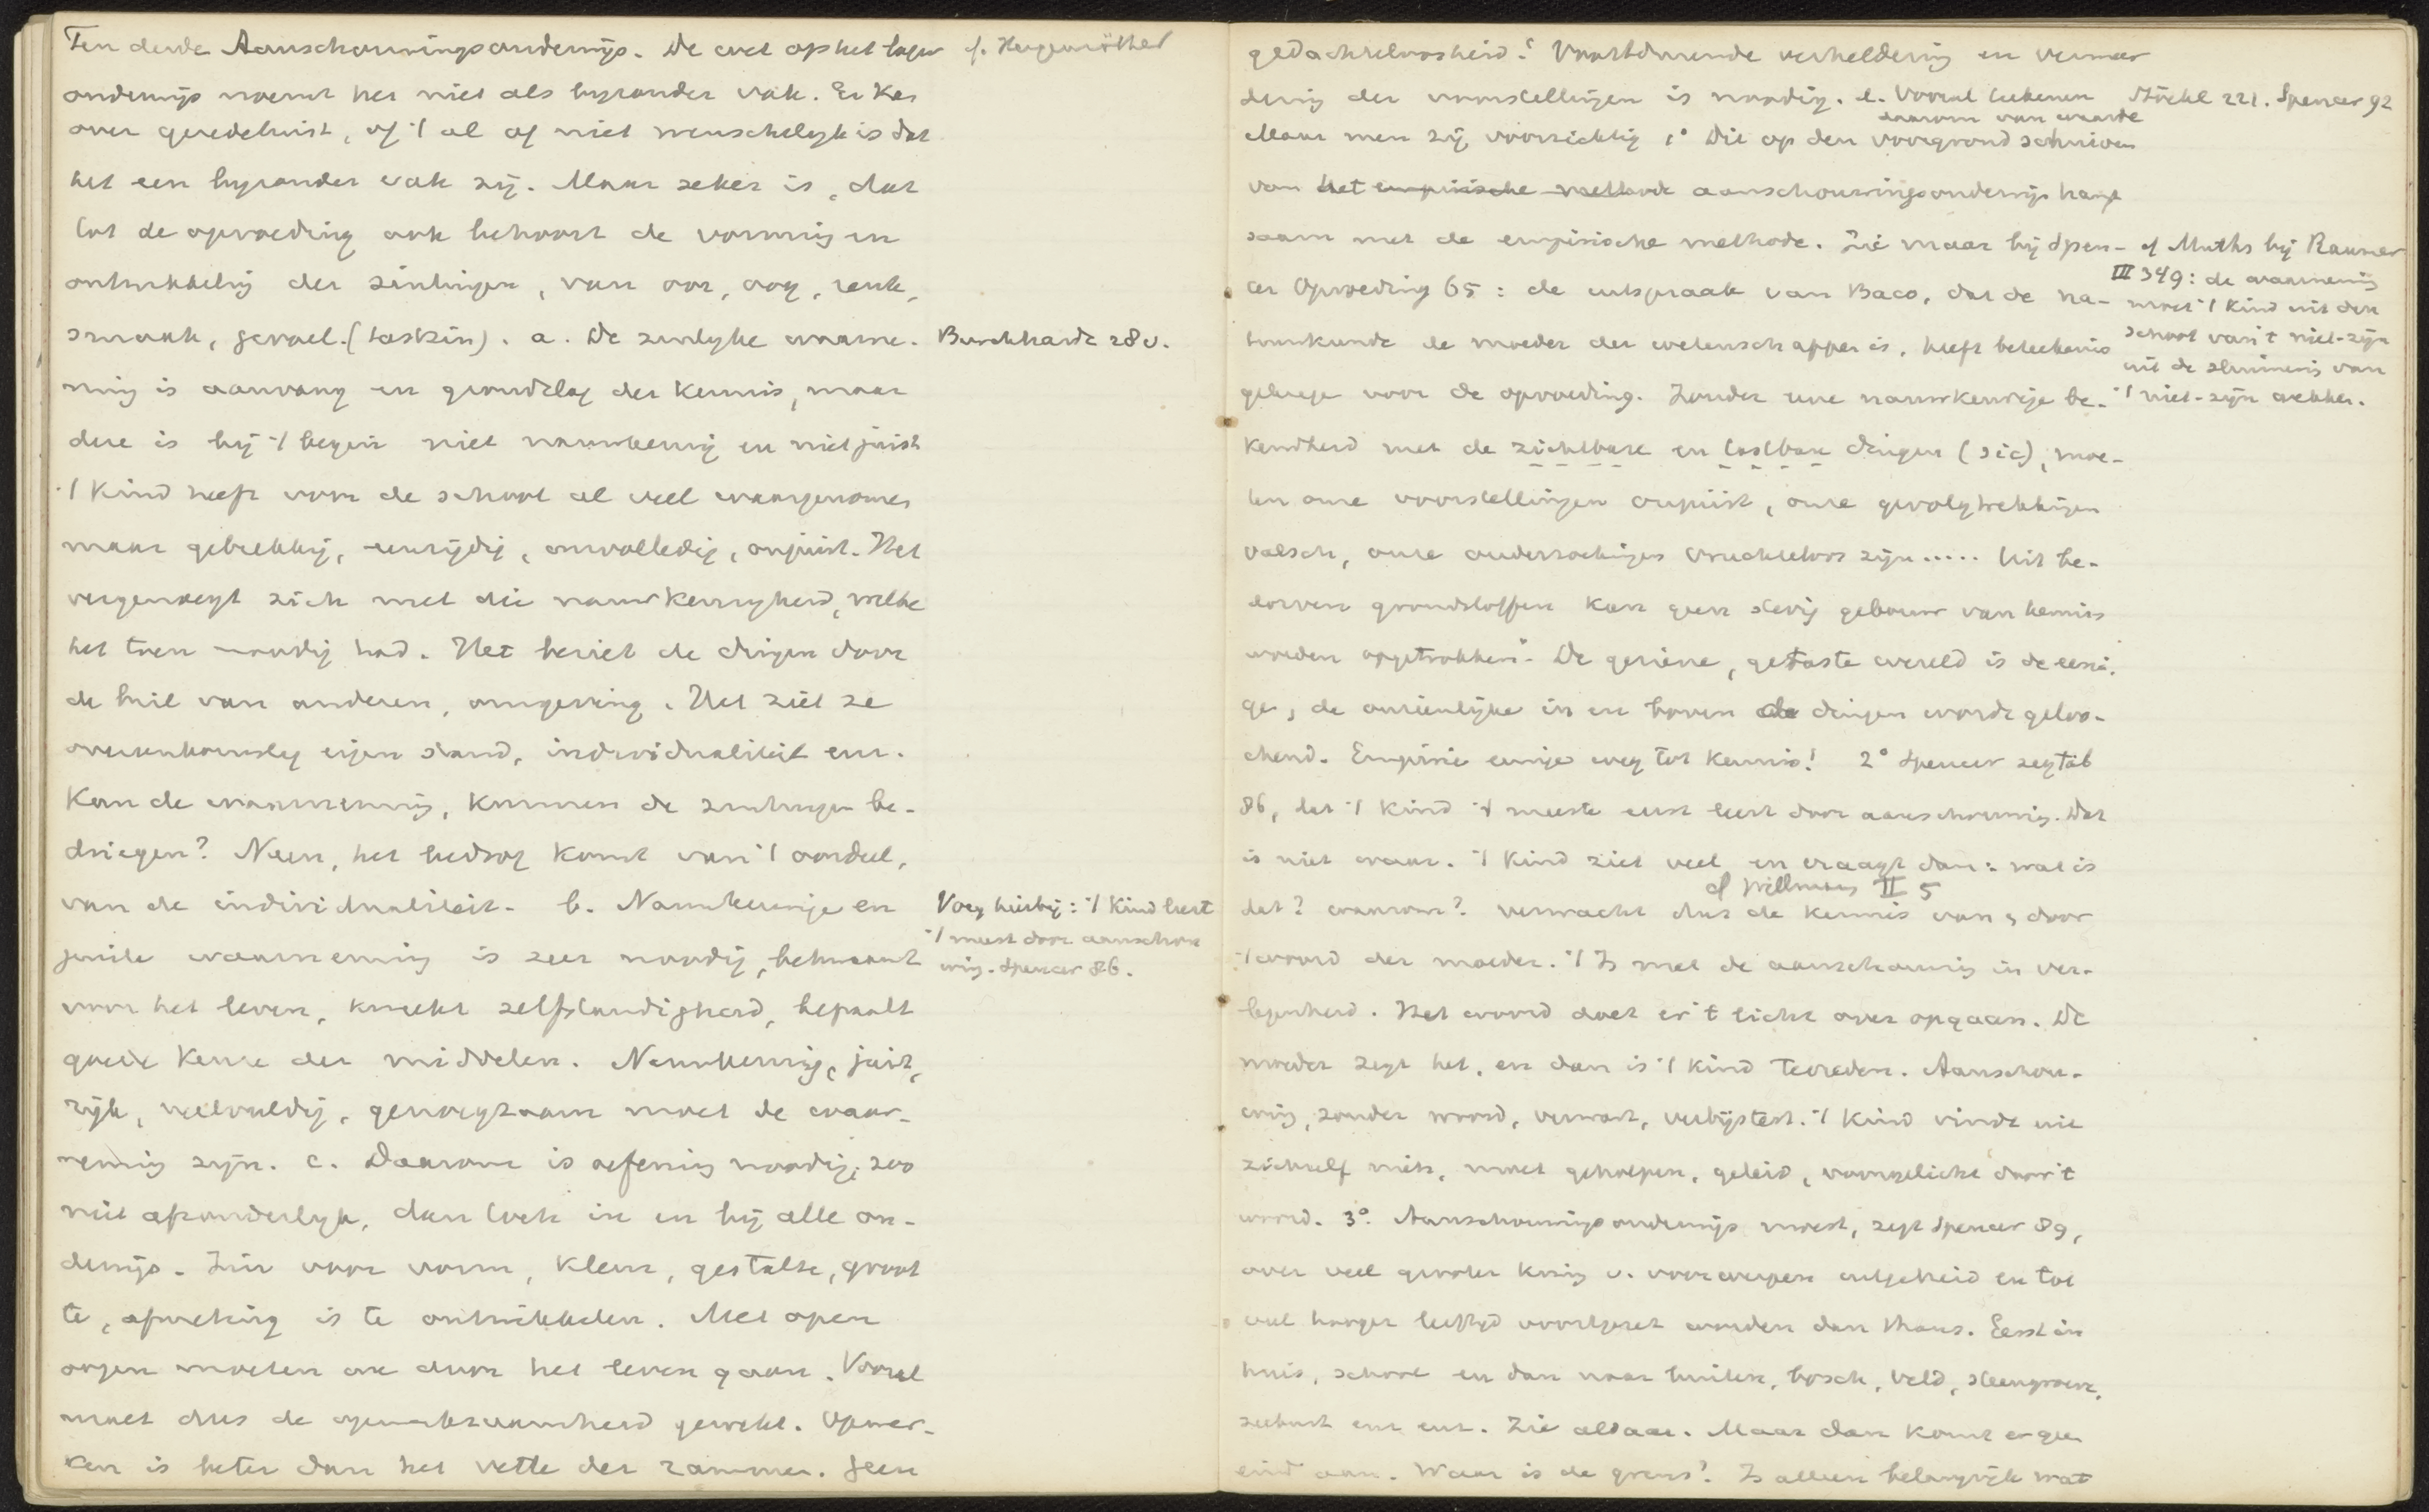 Ten derde Aanschouwingsonderwijs. De wet op het lager
onderwijs noemt het niet als byzonder vak. Er kan
over geredetwist, of 't al of niet wenschelyk is dat
het een byzonder vak zij. Maar zeker is, dat
tot de opvoeding ook behoort de vorming en
ontwikkeling der zintuigen, van oor, oog, reuk,
smaak, gevoel. (tastzin). a. De zinlyke waarne-
ming is aanvang en grondslag der kennis, maar
deze is bij 't begin niet nauwkeurig en niet juist
't Kind heeft voor de school al veel waargenomen
maar gebrekkig, eenzijdig, onvolledig, onjuist. Het
vergenoegt zich met die nauwkeurigheid, welke
het toen noodig had. Het beziet de dingen door
de bril van anderen, omgeving. Het ziet ze
overeenkomstig eigen stand, individualiteit enz.
Kan de waarneming, kunnen de zintuigen be-
driegen? Neen, het bedrog komt van 't oordeel,
van de individualiteit. b. Nauwkeurige en
juiste waarneming is zeer noodig, bekwaamt
voor het leven, kweekt zelfstandigheid, bepaalt
goede keuze der middelen. Nauwkeurig, juist,
rijk, veelvuldig, genoegzaam moet de waar-
neming zijn. c. Daarom is oefening noodig, zoo
niet afzonderlyk, dan toch in en bij alle on-
derwijs. Zin voor vorm, kleur, gestalte, groot
te, afmeting is te ontwikkelen. Met open
oogen moeten we door het leven gaan. Vooral
moet dus de opmerkzaamheid gewekt. Opmer-
ken is beter dan het vette der rammen. Geen
cf. Hergenröther
Burckhardt 28 v.
Voeg hierbij: 't Kind leert
't meest door aanschou
wing. Spencer 86.
gedachteloosheid! Voortdurende verheldering en vermeer
dering der voorstellingen is noodig. d. Vooral teekenen
daarom van waarde
Stöckl 221. Spencer 92
Maar men zij voorzichtig 1° Dit op den voorgrond schuiven
van het empirische methode aanschouwingsonderwijs hangt
saam met de empirische methode. Zie maar bij Spen-
cer Opvoeding 65: de uitspraak van Baco, dat de na-
tuurkunde de moeder der wetenschappen is, heeft beteekenis
gekregen voor de opvoeding. Zonder eene nauwkeurige be-
kendheid met de zichtbare en tastbare dingen (sic), moe-
ten onze voorstellingen onjuist, onze gevolgtrekkingen
valsch, onze onderzoekingen vruchteloos zijn..... Uit be-
dorven grondstoffen kan geen stevig gebouw van kennis
worden opgetrokken". De geziene, getaste wereld is de eeni-
ge, de onzienlyke in en boven de dingen wordt geloo-
chend. Empirie eenige weg tot kennis! 2° Spencer zegt bl
86, dat 't kind 't meeste eerst leert door aanschouwing. Dat
is niet waar. 't Kind ziet veel en vraagt dan: wat is
cf Willmann II 5
dat? waarom? verwacht dus de kennis van, door
't woord der moeder. 't Is met de aanschouwing in ver-
legenheid. Het woord doet er 't licht over opgaan. De
moeder zegt het, en dan is 't kind tevreden. Aanschou-
wing, zonder woord, verwart, verbijstert. 't Kind vindt uit
zichzelf niets, moet geholpen, geleid, voorgelicht door 't
woord. 3°. Aanschouwingsonderwijs moest, zegt Spencer 89,
over veel grooter kring v. voorwerpen uitgebreid en tot
veel hooger leeftijd voortgezet worden dan thans. Eerst in
huis, school en dan naar buiten, bosch, veld, steengroeve,
zeekust enz enz. Zie aldaar. Maar dan komt er geen
eind aan. Waar is de grens? Is alleen belangrijk wat
cf Muths bij Raumer
III 349: de waarneming
moet 't kind uit den
school van 't niet-zijn
uit de sluimering van
't niet-zijn wekken.